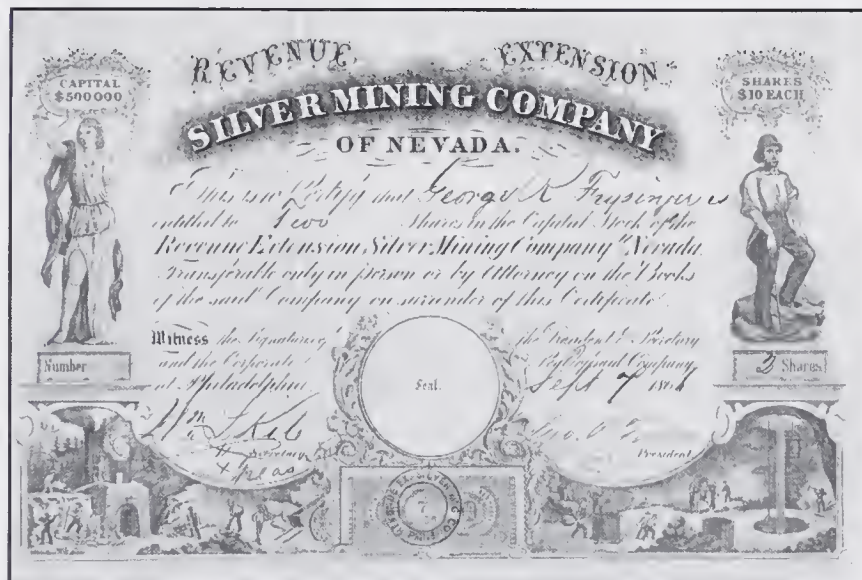 REVENUE EXTENSION
CAPITAL
$500000
SHARES
$10 EACH
SILVER MINING COMPANY
OF NEVADA.
This is to Certify that George K Frysinger is
entitled to Two Shares in the Capital Stock of the
Revenue Extension Silver Mining Company Nevada
Transferable only in person or by Attorney on the Books
of the said Company on surrender of this Certificate
Witness the Signatures the President & Secretary
and the Corporate Company
at Philadelphia Sept 7 186
Number
Seal.
Shares
Wm
Secretary
& Treas
President